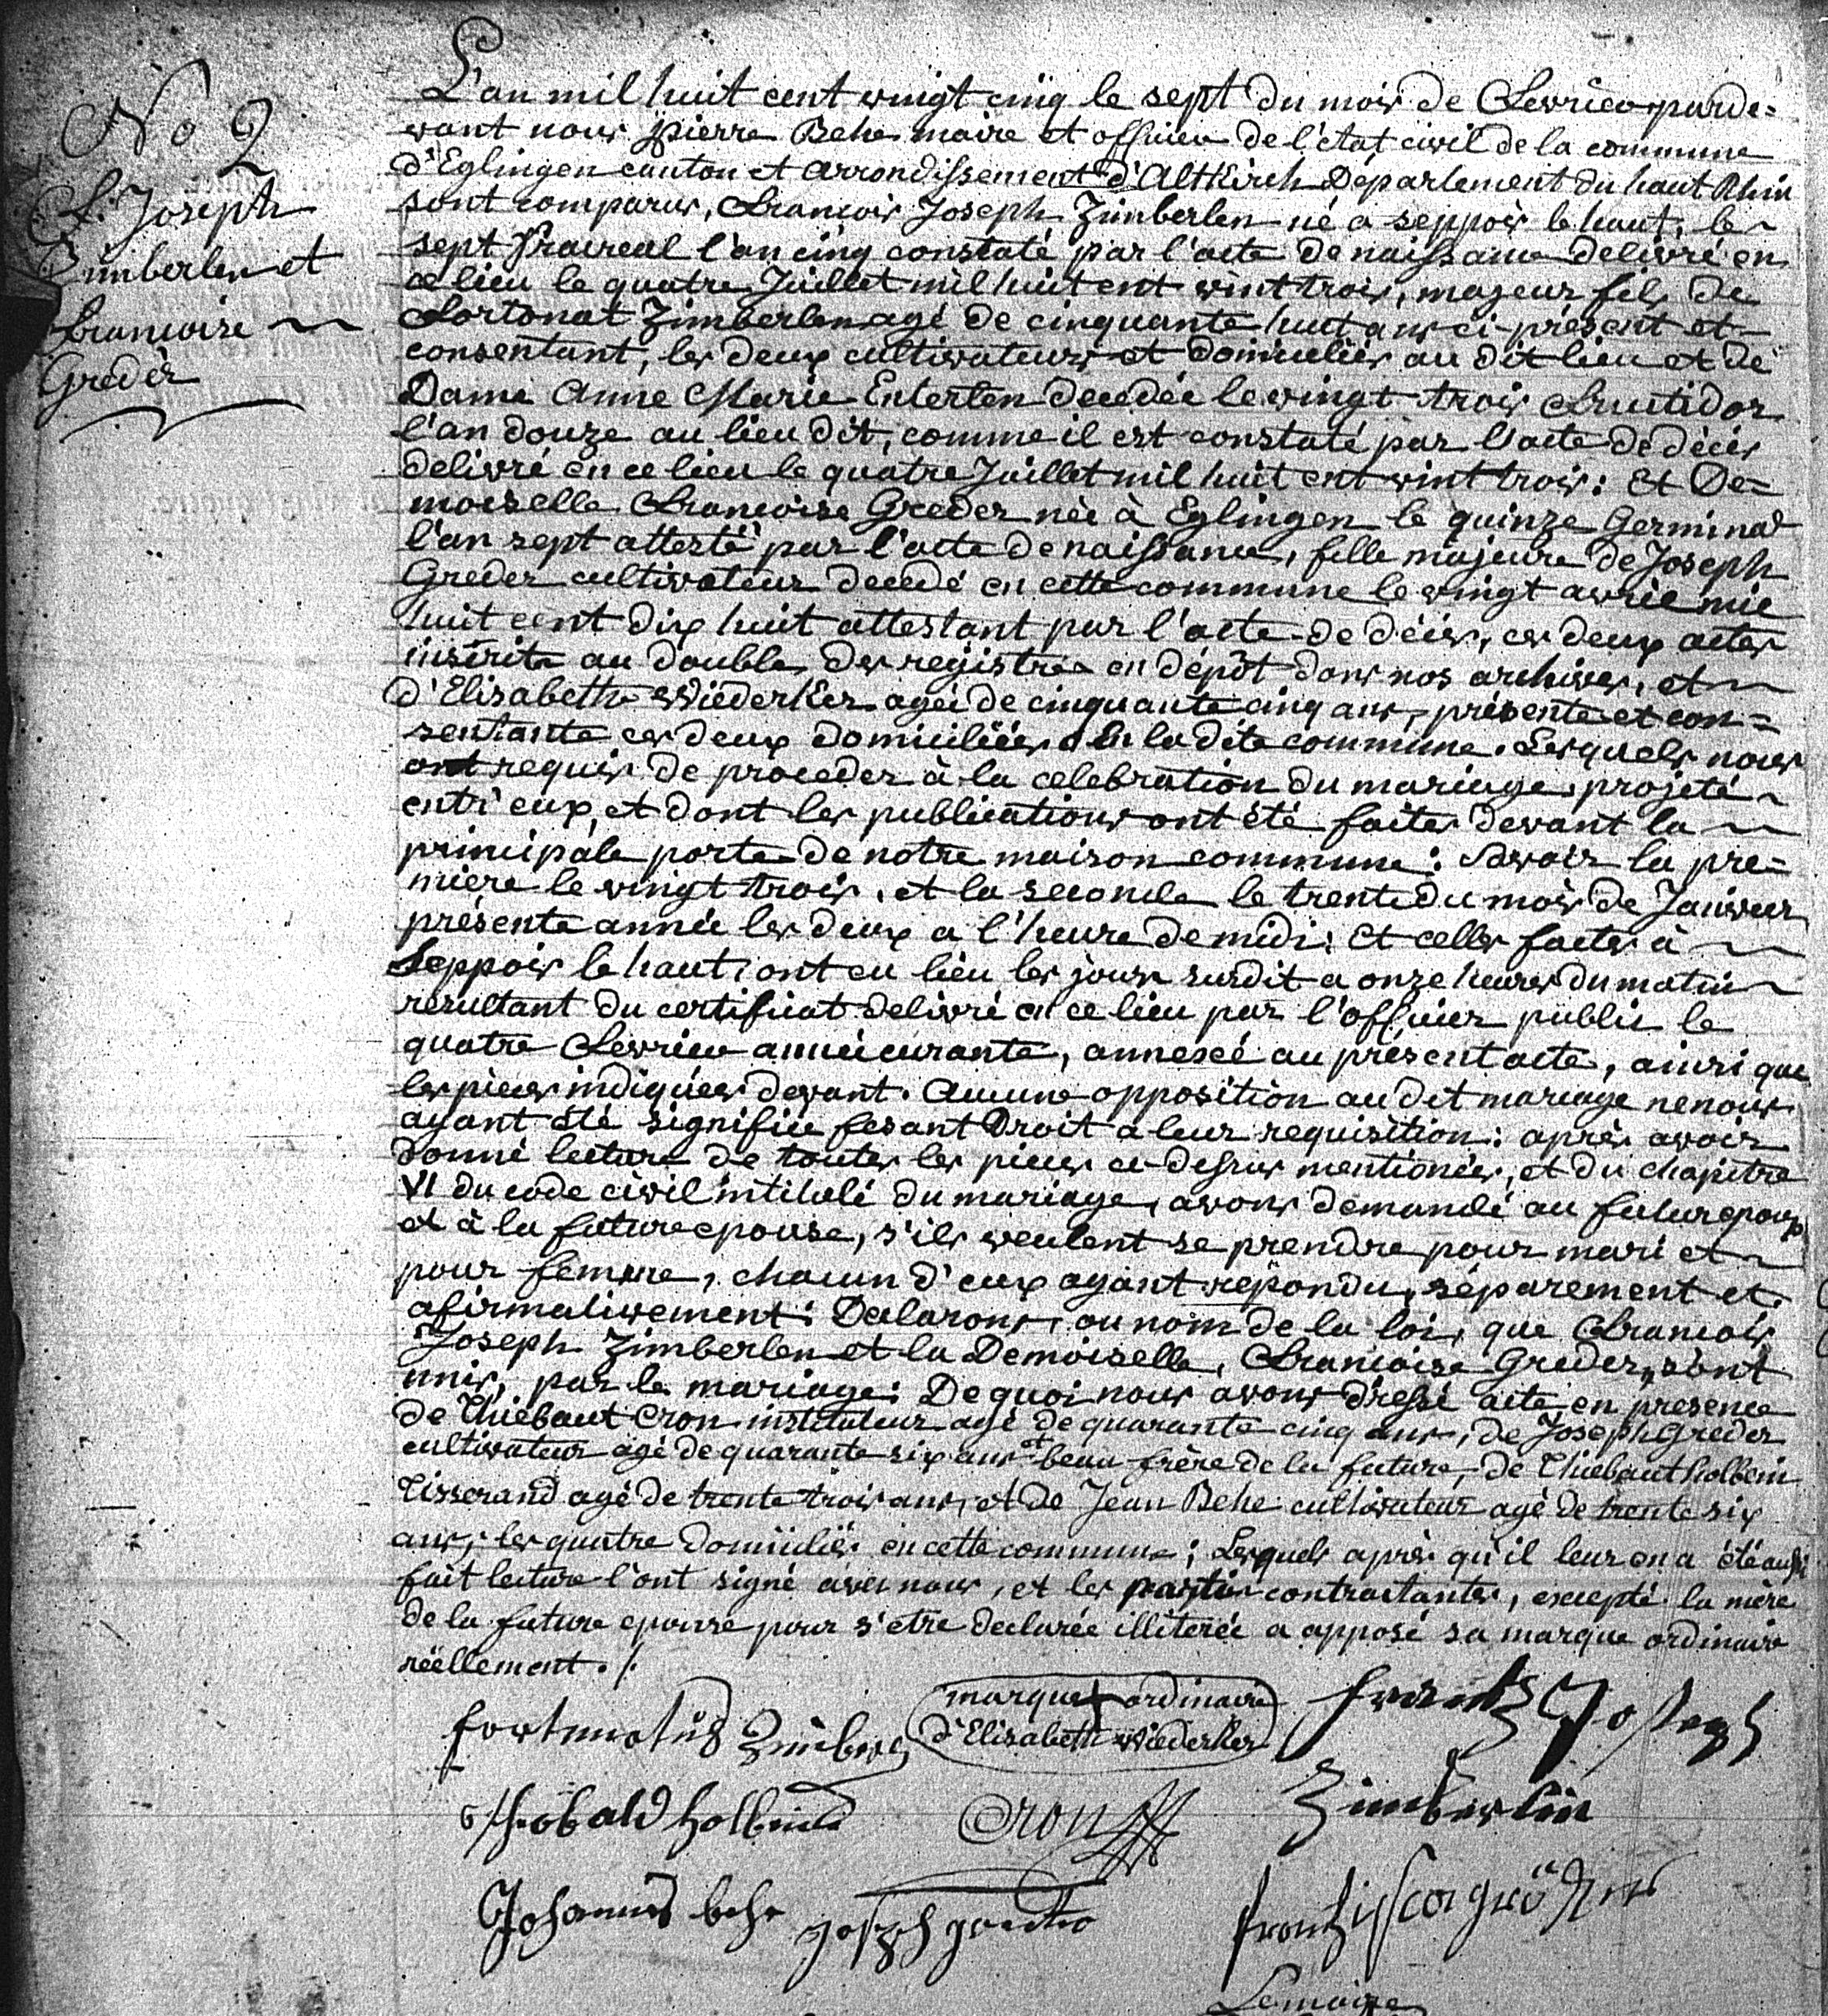 No 2
F. Joseph
Zimberlen et
Francoise
Gredèr
L'an mil huit cent vingt cinq le sept du mois de Fevrier parde=
vant nous pierre Behe maire et officier de l'état civil de la commune
d'Eglingen canton et arrondissement d'Altkirch Département du haut Rhin
sont comparus, Francois Joseph Zimberlen né a seppois le haut, le
sept Prairéal l'an cinq constaté par l'acte de naissance delivré en
ce lieu le quatre Juillet mil huit cent vint trois, majeur fils de
Fortonat Zimberlen agé de cinquante huit ans ci-présent et
consentant, les deux cultivateurs et domiciliés au dit lieu et de
Dame Anne Marie Enterlen decedée le vingt trois Fructidor
l'an douze au lieu dit, comme il est constaté par l'acte de décès
delivré en ce lieu le quatre Juillet mil huit cent vint trois: Et De=
moiselle Francoise Greder née à Eglingen le quinze Germinal
l'an sept attesté par l'acte de naissance, fille majeure de Joseph
Greder cultivateur decedé en cette commune le vingt avril mil
huit cent dix huit attestant par l'acte de décès, ces deux actes
inscrits au double des registres en dépôt dans nos archives, et
d'Elisabeth Wiederker agée de cinquante cinq ans, présente et con=
sentante ces deux domiciliées en la dite commune. Lesquels nous
ont requis de proceder à la celebration du mariage projeté
entr'eux, et dont les publications ont été faites devant la
principale porte de notre maison commune: Savoir la pre=
miere le vingt trois, et la seconde le trente du mois de Janvier
présente année les deux a l'heure de midi; Et celles faites à
Seppois le haut, ont eu lieu les jours susdit a onze heures du matin
resultant du certificat delivré en ce lieu par l'officier public le
quatre Fevrier année curante, annexé au présent acte, ainsi que
les pièces indiquées devant. Aucune opposition au dit mariage ne nous
ayant été signifiée fesant Droit a leur requisition: après avoir
donné lecture de toutes les pieces ci-dessus mentionées, et du chapitre
VI du code civil intitulé du mariage, avons demandé au futur epoux
et à la future epouse, s'ils veulent se prendre pour mari et
pour femme, chacun d'eux ayant repondu, séparement et
afirmativement; Declarons, au nom de la loi, que Francois
Joseph Zimberlen et la Demoiselle, Francoise Greder, sont
unis, par le mariage: De quoi nous avons dressé acte en presence
de Thiebaut Cron instituteur agé de quarante cinq ans, de Joseph Greder
cultivateur agé de quarante six ans et beau frère de la future, de Thiebaut holbein
Tisserand agé de trente trois ans, et de Jean Behe cultivateur agé de trente six
ans, les quatre domiciliés en cette commune; Lesquels après qu'il leur en a été aussi
fait lecture l'ont signé avec nous, et les parties contractantes, excepté la mère
de la future epouse pour s'etre declarée illiterée a apposé sa marque ordinaire
réellement. /.
fortunatus Zimberlen
marque + ordinaire
d'Elisabeth Wiederker
frantz Joseph
Zimberlin
Thebald holbein
Cron
Johannes behe
Joseph greder
frantzisca gröder
Lemaire